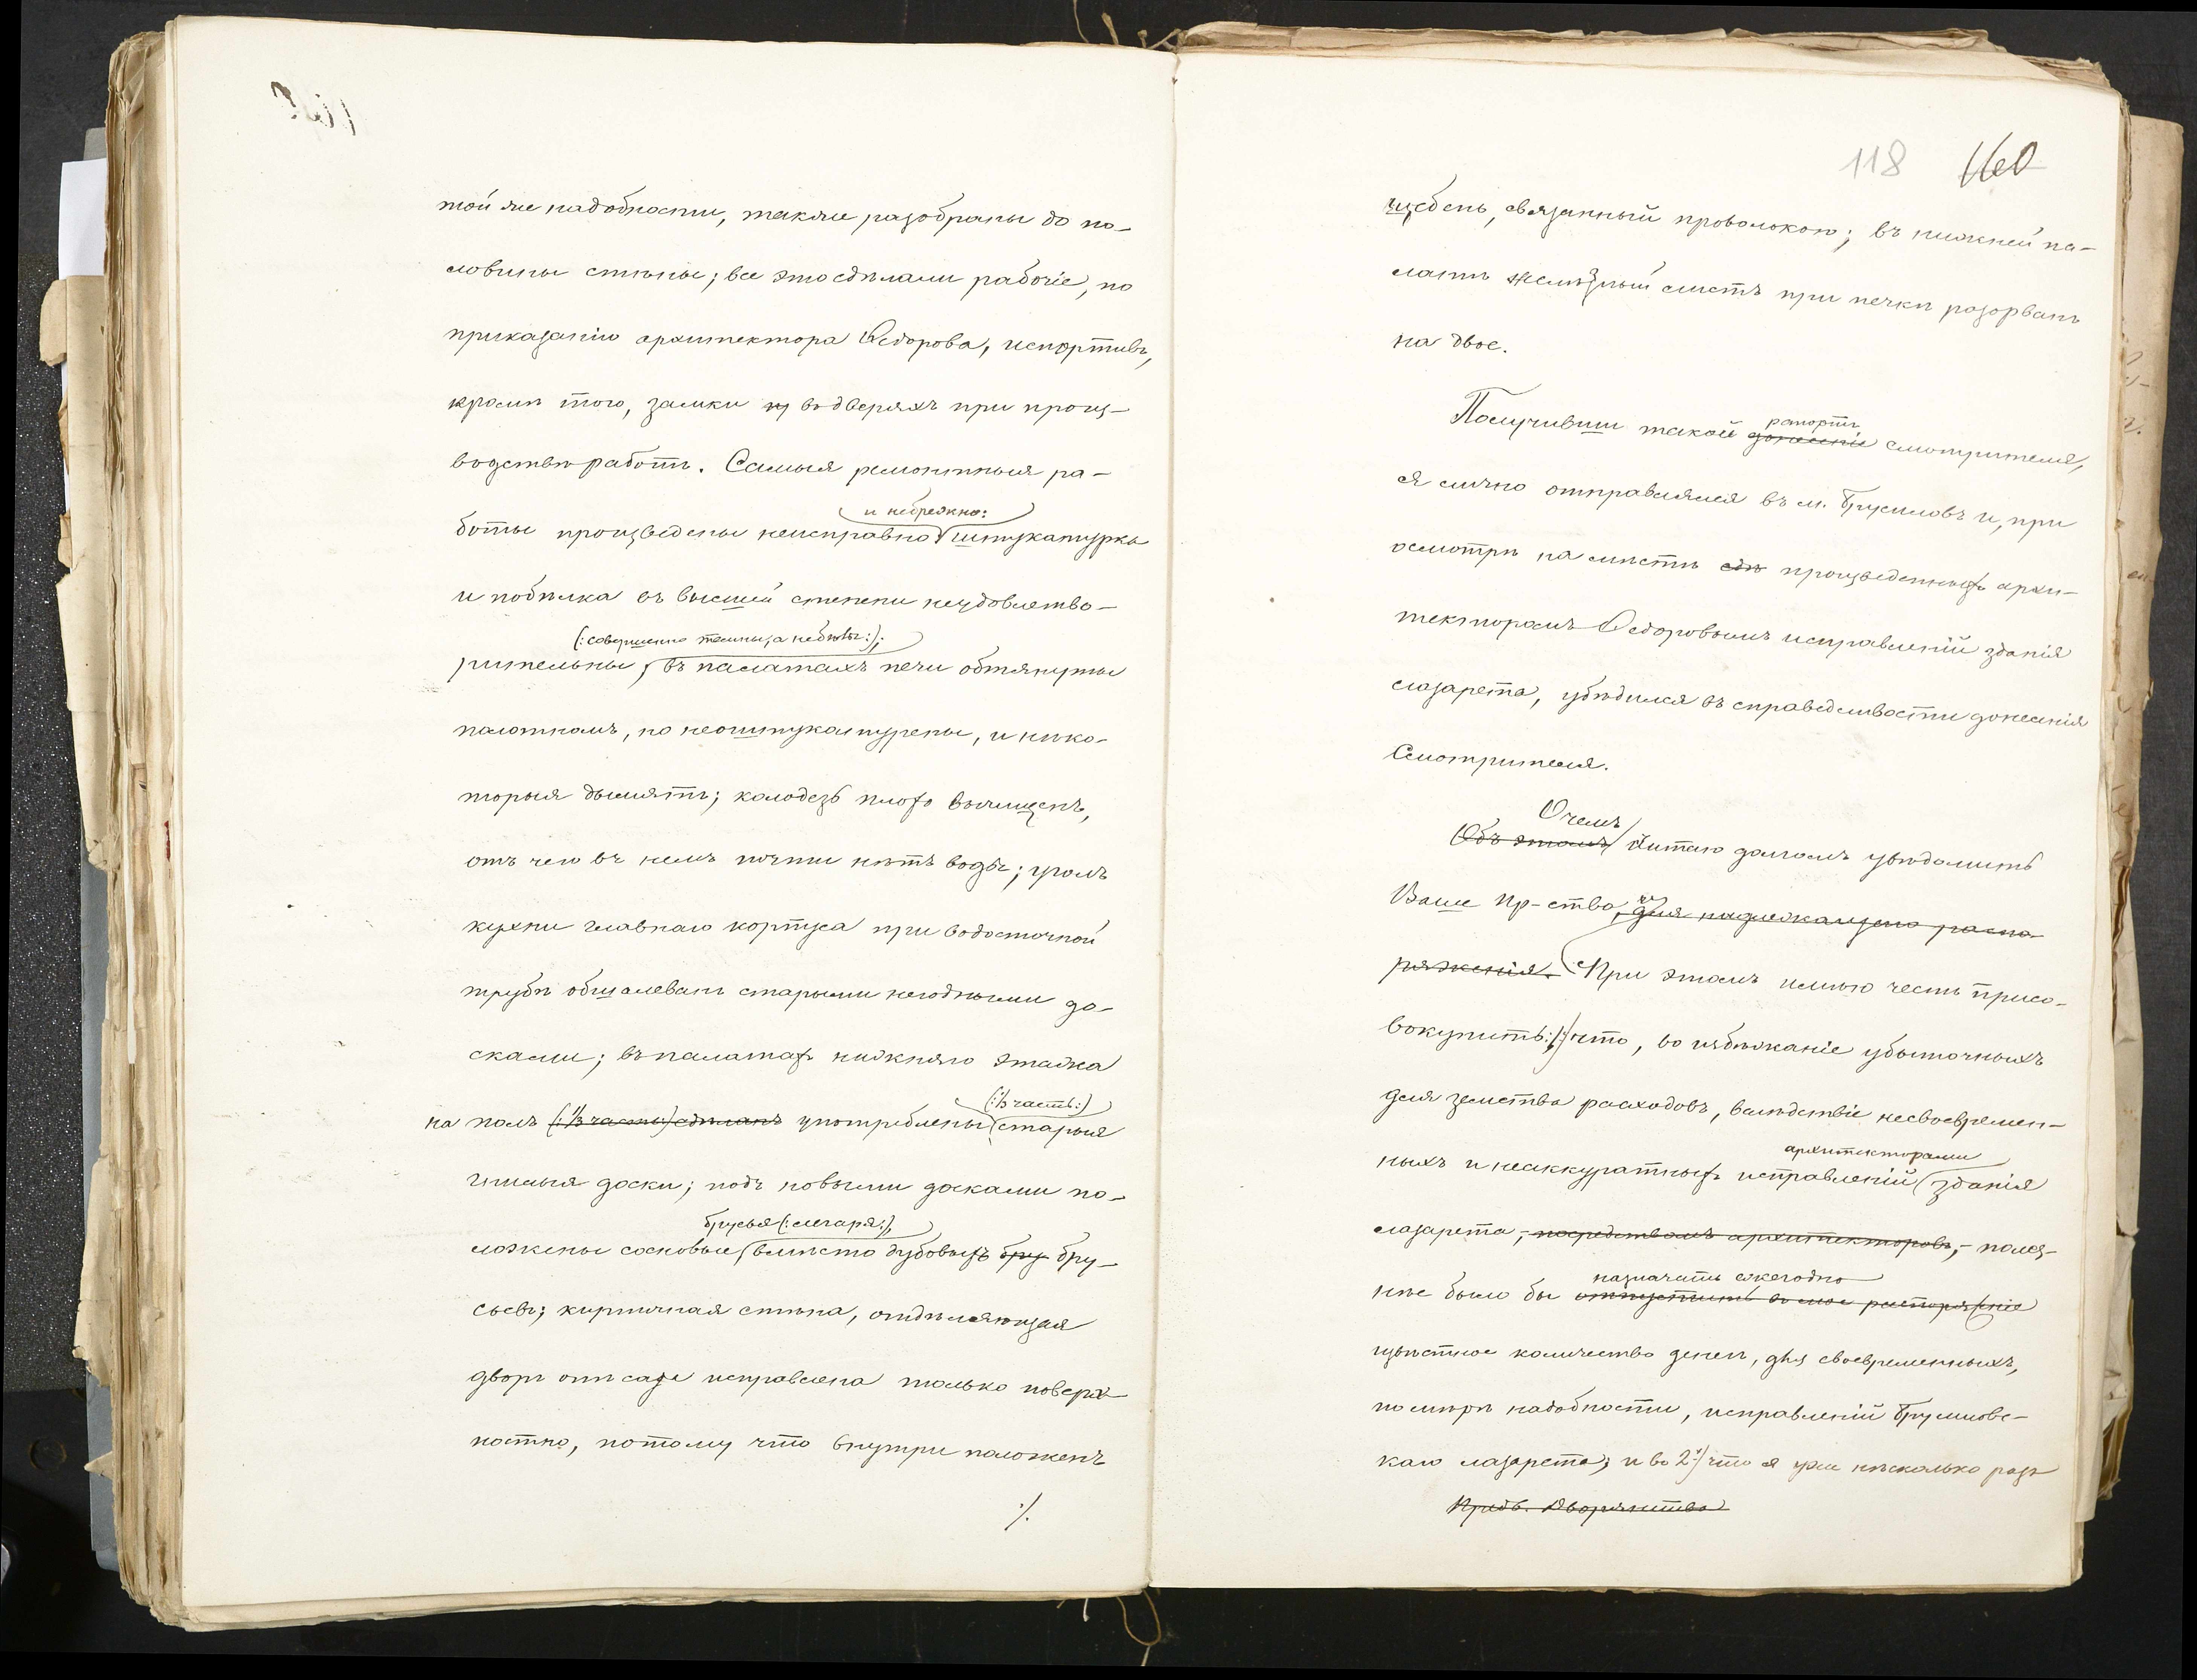 той же надобности, также разобраны до по-
ловины стѣны; все это сдѣлали рабочіе, по
приказанію архитектора Ѳедорова, испортивъ,
кромѣ того, замки въ дверяхъ при произ-
водствѣ работъ. Самыя ремонтныя ра-
и небрежно:
боты произведены неисправно штукатурка
и побѣлка въ высшей степени неудовлетво-
(:совершенно темныя, а не бѣлы:);
рительны, въ палатахъ печи обтянуты
полотномъ, но неоштукатурены, и нѣко-
торыя дымятъ; колодезь плохо вычищенъ,
отъ чего въ немъ почти нѣтъ воды; уголъ
кухни главнаго корпуса при водосточной
трубѣ обшалеванъ старыми негодными до-
сками; въ палатах нижняго этажа
(:⅓ часть:)
на полъ (:⅓ часть) сдѣланъ употреблены старыя
гнилыя доски; подъ новыми досками по-
брусья (:легаря:),
ложены сосновые, вмѣсто дубовыхъ бру бру-
сьевъ; кирпичная стѣна, отдѣляющая
дворъ отъ сада исправлена только поверх
ностно, потому что внутри положенъ
./.
118 160
щебень, связанный проволокою; въ нижней па-
латѣ желѣзный листъ при печкѣ разорванъ
на двое.
рапортъ
Получивши такой донесеніе смотрителя,
я лично отправлялся въ м. Брусиловъ и, при
осмотрѣ на мѣстѣ сдѣ произведенныхъ архи-
текторомъ Ѳедоровымъ исправленій зданія
лазарета, убѣдился въ справедливости донесенія
Смотрителя.
О чемъ
Объ этомъ считаю долгомъ увѣдомить
Ваше Пр-ство, для надлежащаго распо-
ряженія. При этомъ имѣю честь присо-
вокупить: что, во избѣжаніе убыточныхъ
для земства расходовъ, вслѣдствіе несвоевремен-
архитекторами
ныхъ и неаккуратныхъ исправленій зданія
лазарета, - посредствомъ архитекторовъ, - полез-
назначать ежегодно
нѣе было бы отпустить въ мое распоряженіе
извѣстное количество денегъ, для своевременныхъ,
по мѣрѣ надобности, исправленій Брусиловс-
каго лазарета; и во 2х/ что я уже нѣсколько разъ
Предв. Дворянства